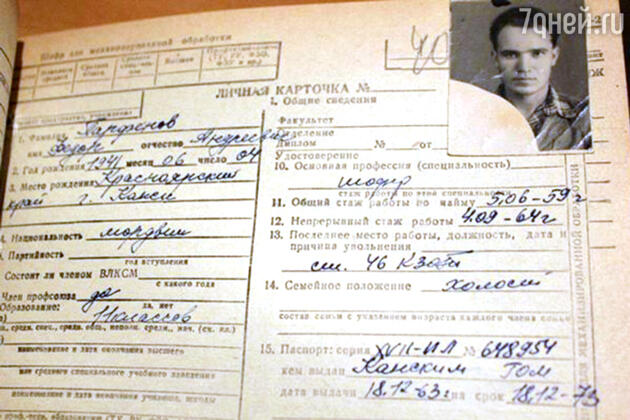 7дней.ru
Шифр для механизированной обработки
ЛИЧНАЯ КАРТОЧКА №
1. Общие сведения
1. Фамилия Парфенов
имя Федор отчество Андреевич
2. Год рождения 1941 месяц 06 число 04
3. Место рождения Красноярский
край г. Канск
4. Национальность мордвин
5. Партийность
год вступления
Состоит ли членом ВЛКСМ
с какого года
Член профсоюза да
да, нет
Образование: 11 классов
наименование и дата окончания высшего
или среднего специального учебного заведения
Факультет
Отделение
Диплом № от
Удостоверение
10. Основная профессия (специальность)
шофер
стаж работы по этой специальности
11. Общий стаж работы по найму 5.06-59 г
12. Непрерывный стаж работы 4.09-64 г
13. Последнее место работы, должность, дата и
причина увольнения
14. Семейное положение холост
состав семьи с указанием возраста каждого члена семьи
15. Паспорт: серия XVII-ИЛ № 648954
кем выдан Канским ГОМ
дата выдачи 18.12-63 г на срок 18.12-73
МЕХАНИЗИРОВАННОЙ ОБРАБОТКИ
7дней.ru